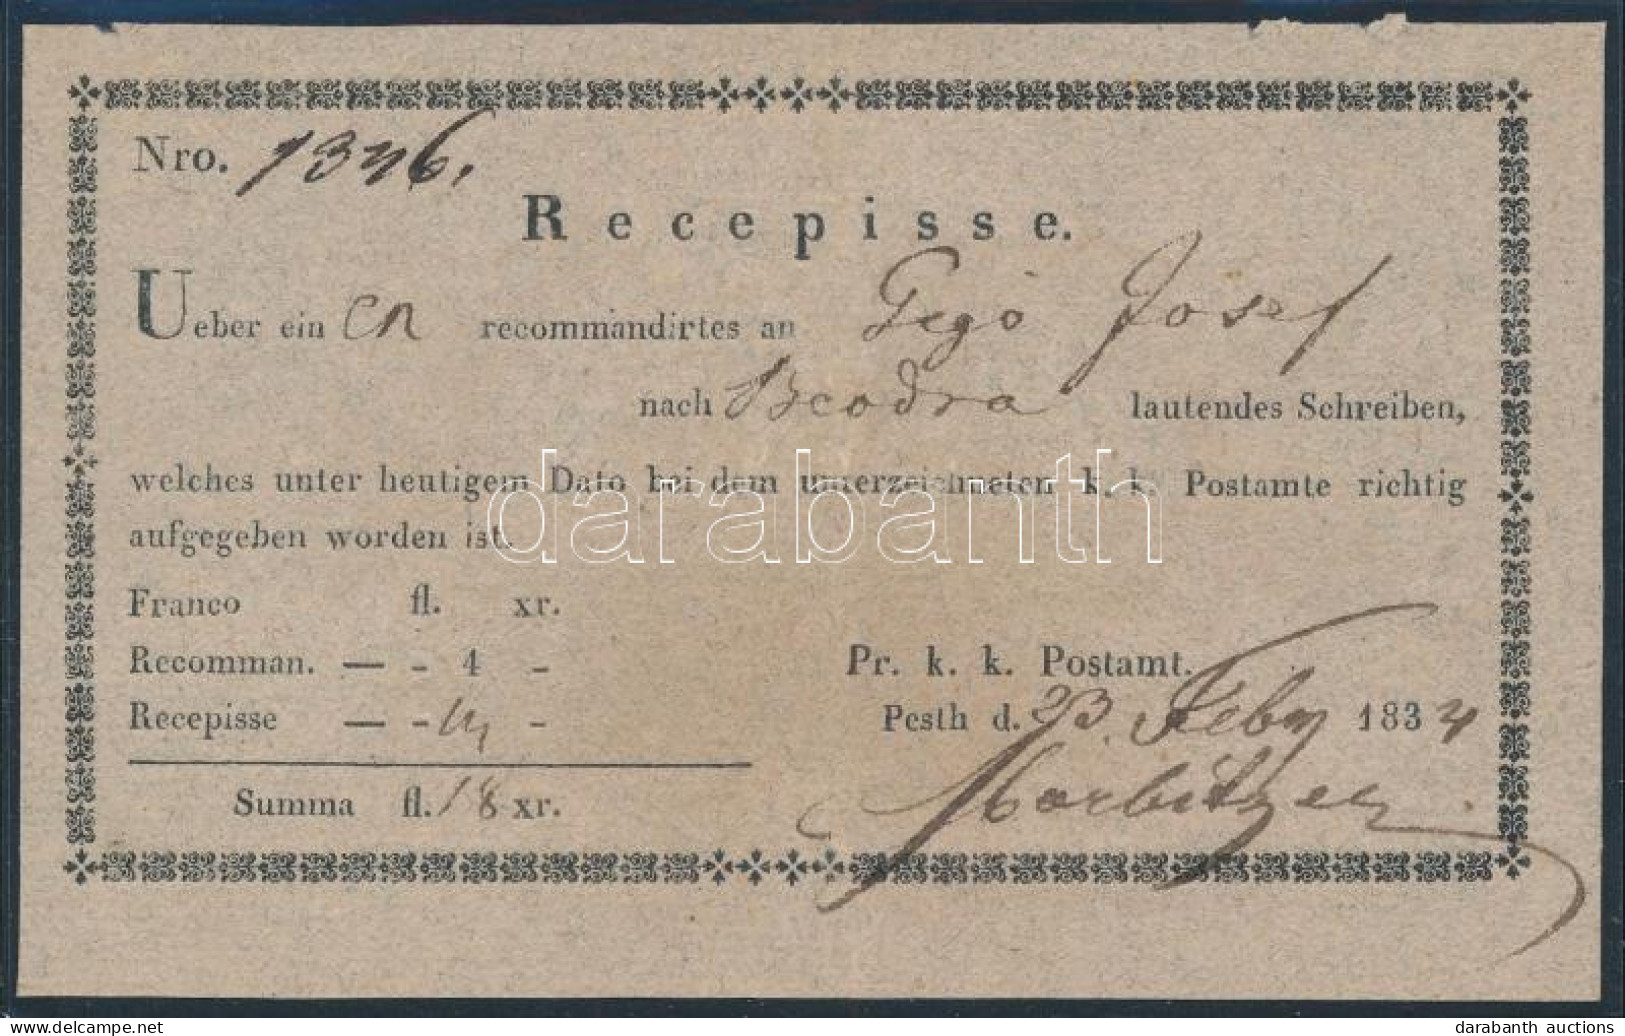 Nro. 1346.
Recepisse.
Ueber ein en recommandirtes an Gegö Josef
nach Beodra lautendes Schreiben,
welches unter heutigem Dato bei dem unterzeichneten k. k. Postamte richtig
aufgegeben worden ist.
darabanth
Franco fl. xr.
Recomman. — - 4 -
Recepisse — - -
Summa fl. 18 xr.
Pr. k. k. Postamt.
Pesth d. 23. Feby 1834
darabanth auctions